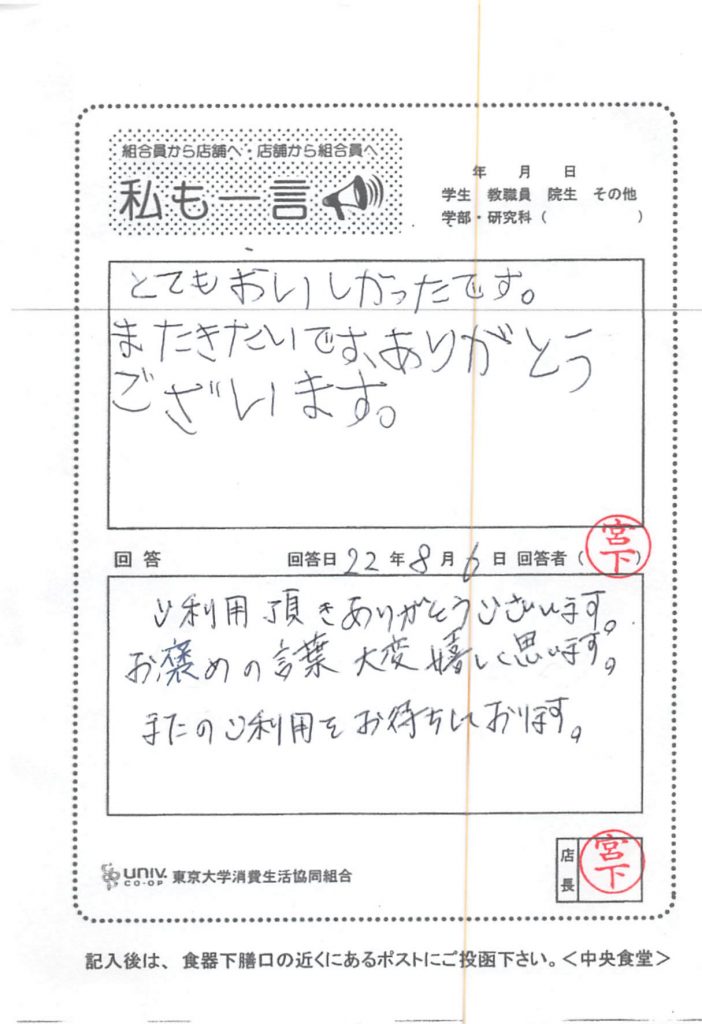 組合員から店舗へ・店舗から組合員へ
私も一言
年 月 日
学生 教職員 院生 その他
学部・研究科（ ）
とてもおいしかったです。
またきたいです、ありがとう
ございます。
回答 回答日 22 年 8 月 6 日 回答者（宮下）
ご利用頂きありがとうございます。
お褒めの言葉 大変嬉しく思います。
またのご利用をお待ちしております。
UNIV. CO-OP 東京大学消費生活協同組合
店長 宮下
記入後は、食器下膳口の近くにあるポストにご投函下さい。＜中央食堂＞